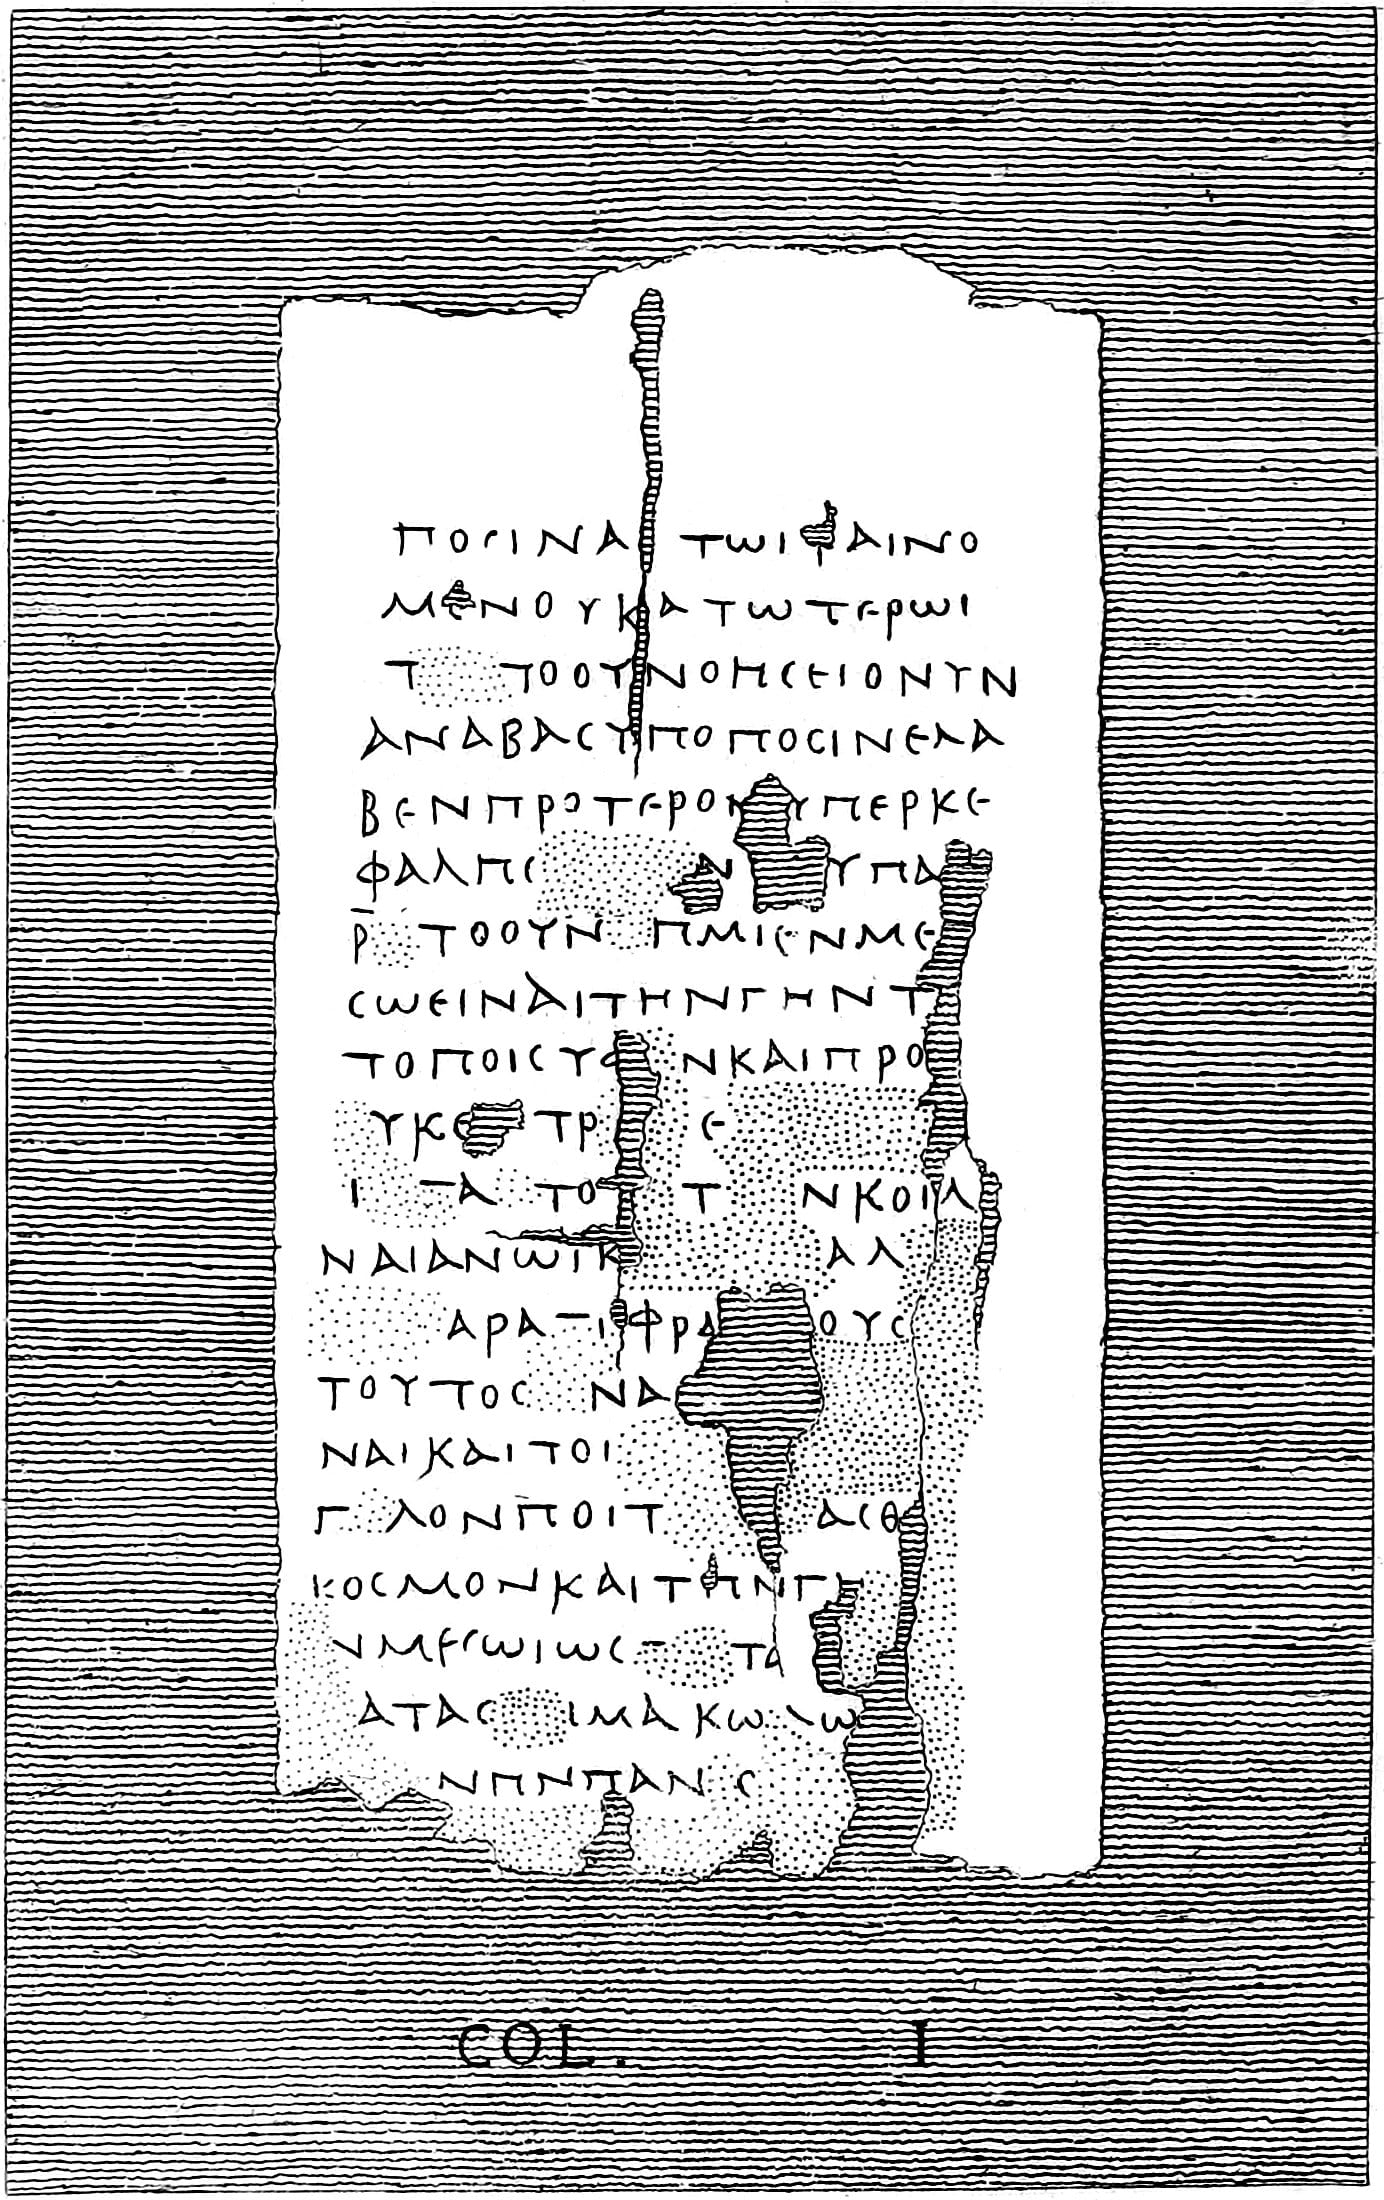 ΠΟСΙΝΑ ΤΩΙΦΑΙΝΟ
ΜΕΝΟΥΚΑΤΩΤΕΡΩΙ
Τ ΤΟΟΥΝΟΗСΕΙΟΝΥΝ
ΑΝΑΒΑСΥΠΟΠΟСΙΝΕΛΑ
ΒΕΝΠΡΟΤΕΡΟΝΥΠΕΡΚΕ
ΦΑΛΠС Ν ΥΠΑ
Ρ ΤΟΟΥΝ ΠΜΙΕΝΜΕ
СΩΕΙΝΑΙΤΗΝΓΗΝΤ
ΤΟΠΟΙСΥΦ ΝΚΑΙΠΡΟ
ΥΚΕ ΤΡ Ε
Ι ΤΑ ΤΟ Τ ΝΚΟΙΛ
ΝΑΙΑΝΩΙΚ ΑΛ
ΑΡΑ ΤΙ ΦΡΑ ΟΥС
ΤΟΥΤΟС ΝΑ
ΝΑΙΚΑΙΤΟΙ
Γ ΛΟΝΠΟΙΤ ΑСΘ
ΚΟСΜΟΝΚΑΙΤΗΝΓΗ
ΝΜΕСΩΙΩС ΤΑ
ΑΤΑС ΙΜΑΚΩ ΛΩ
ΝΠΝΠΑΝ С
COL. I